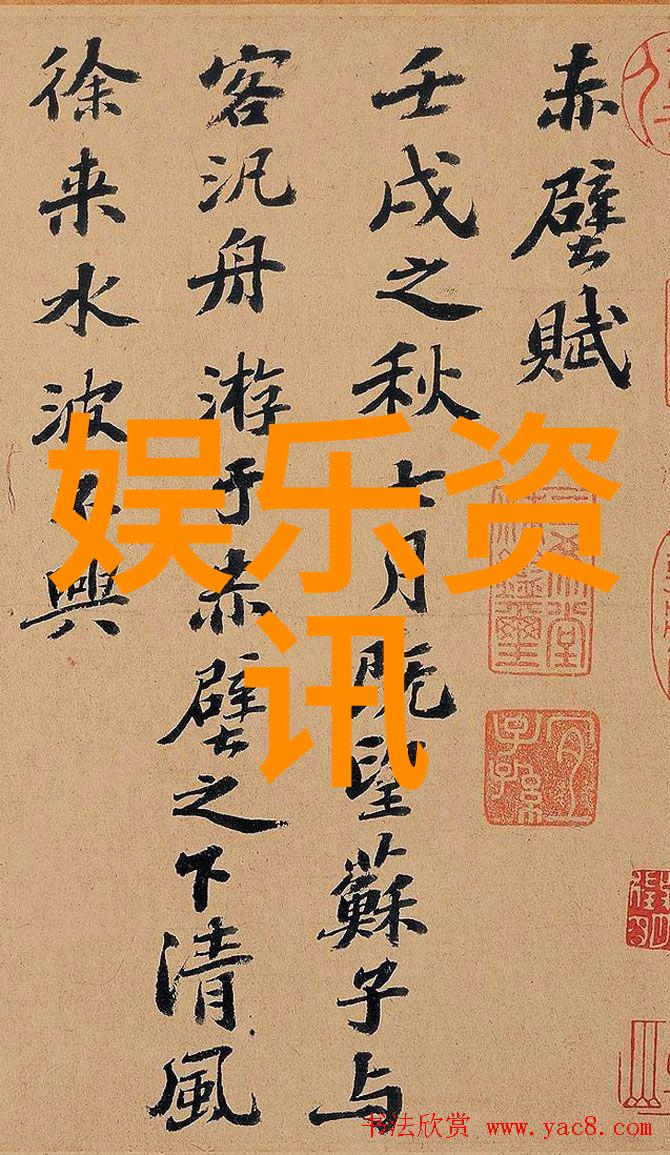 赤壁賦
壬戌之秋七月既望蘇子与
客汎舟游于赤壁之下清風
徐来水波不興
娱乐资
讯
三希堂精鑑璽
宜子孫
书法欣赏 www.yac8.com